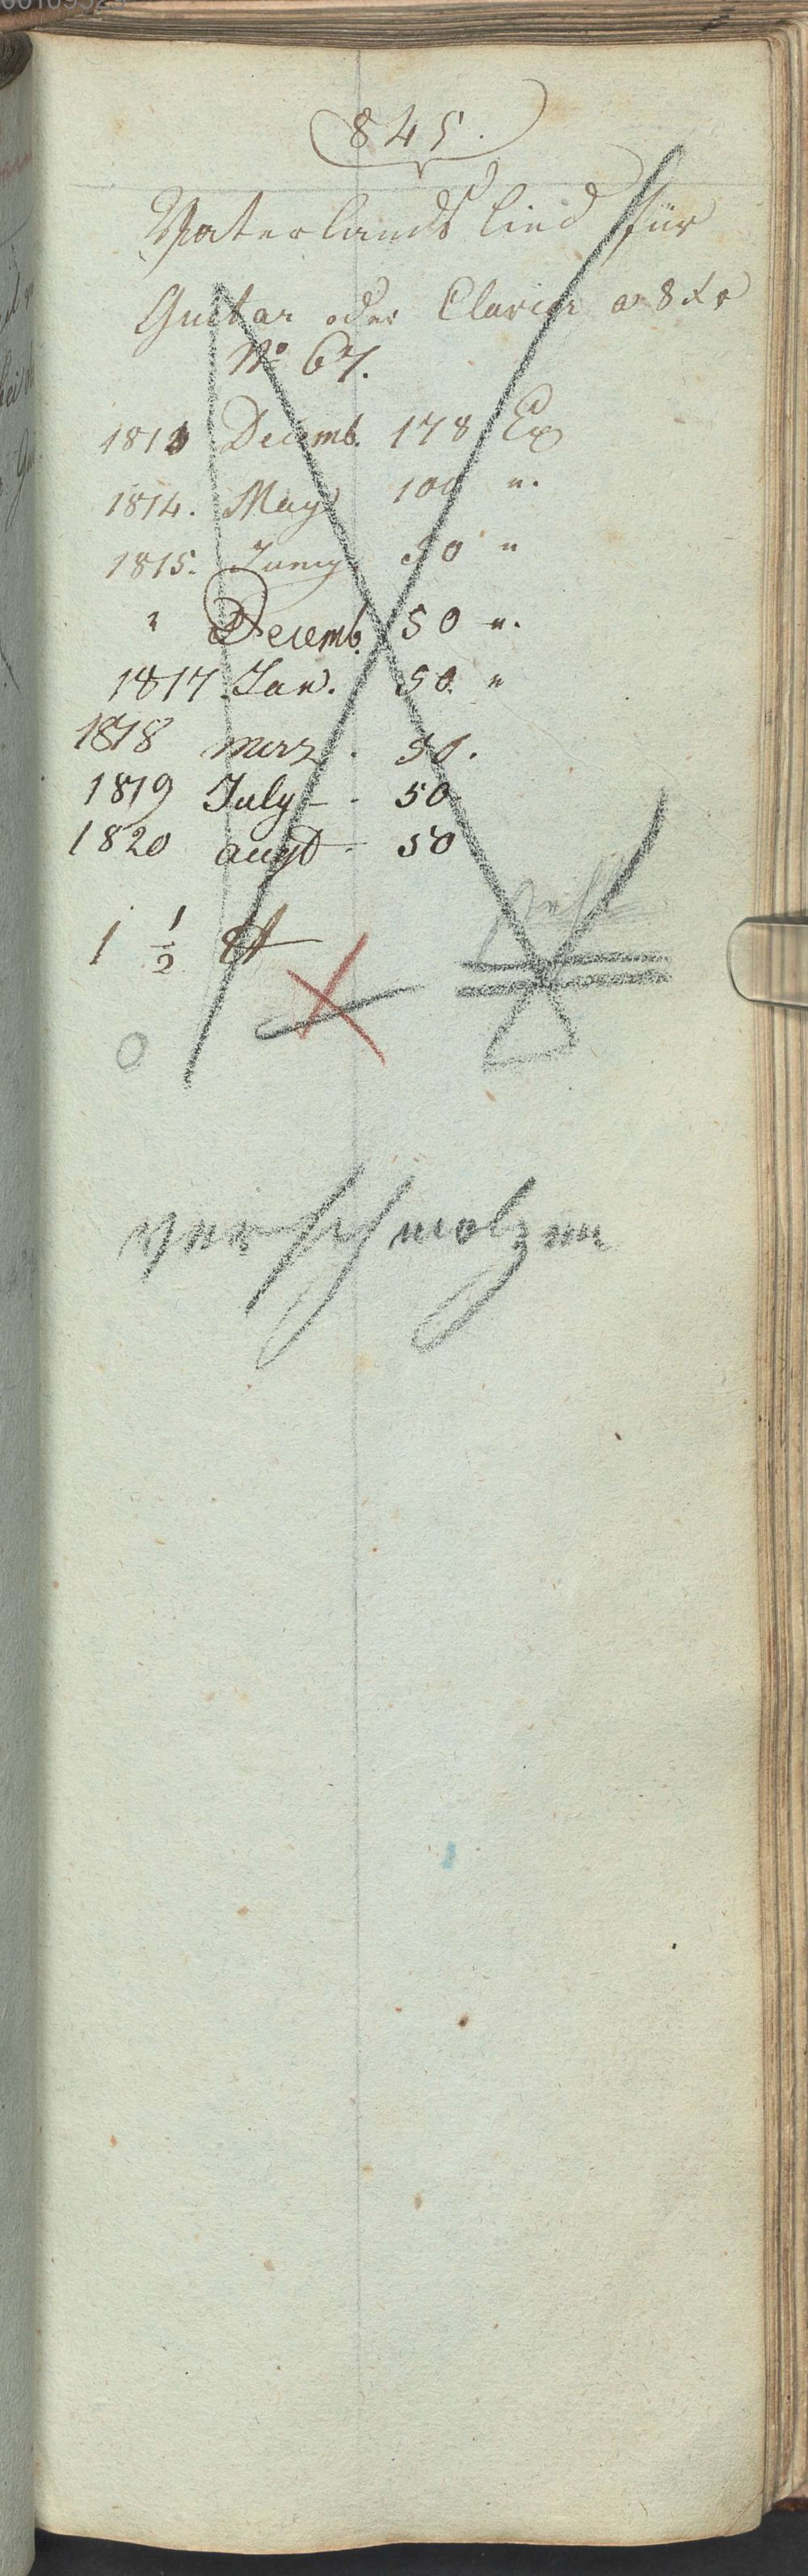 845.
Vaterlands Lied für
Guitar oder Clavier a 8 Xr
No 67.
1813 Decemb. 178 Ex
1814. May 100 "
1815. Juny 50 "
" Decemb. 50 "
1817. Jan. 50 "
1818 merz . 50.
1819 July - . 50
1820 augst - 50
1 1/2 ℔
fehlt
verschmolzen